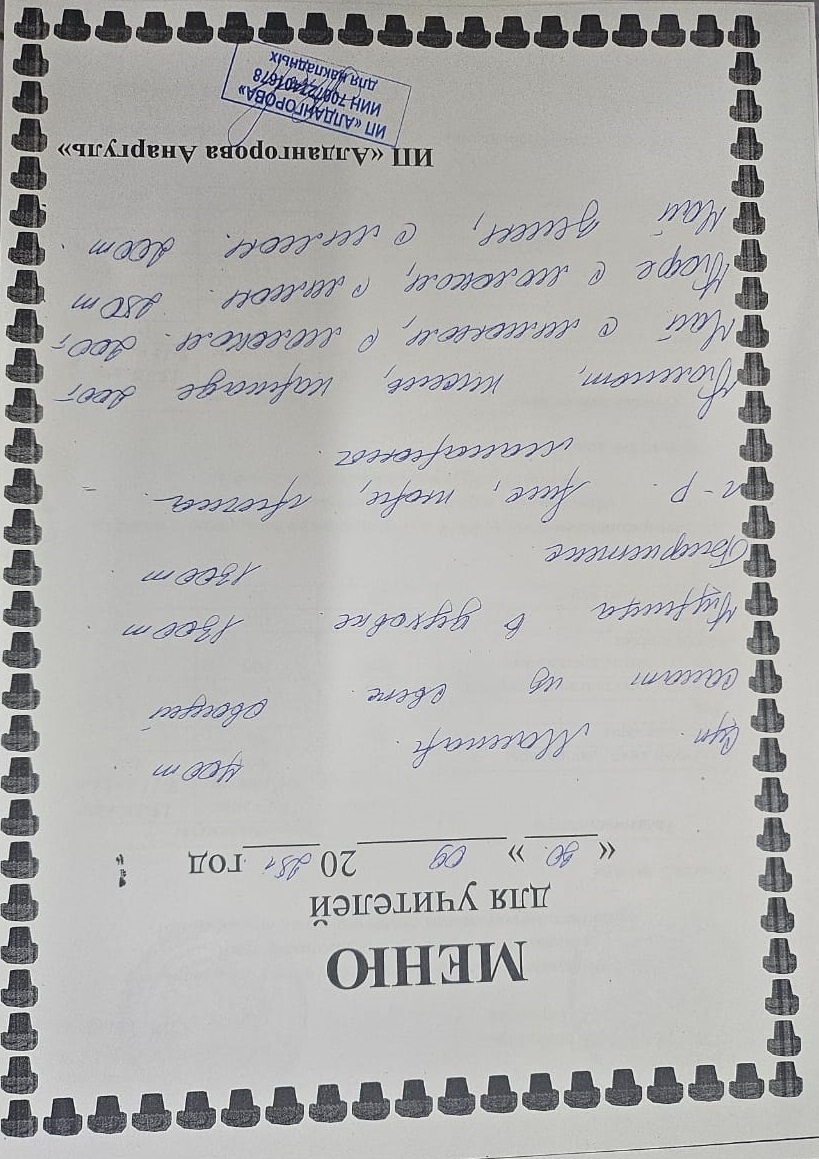 МЕНЮ
для учителей
« 30. » 09 20 25 г год
Суп. Машпар. 400 т
салат из свеж. овощей
Курица в духовке 1300 т
Бифштекс 1300 т
г-р. рис, пюре, гречка. =
макароны
Компот, кисель, каркаде 200,-
Чай с лимоном, с молоком 200,-
Кофе с молоком, с лимон. 250 т
Чай зелен, с лимон. 200 т.
ИП «Алдангорова Анаргуль»
ИП «АЛДАНГОРОВА»
ИИН
для накладных